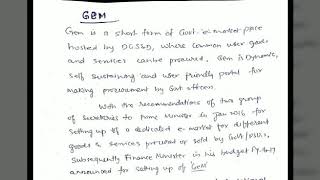 GEM
Gem is a short form of Govt-'e' market place
hosted by DGS&D, where common user goods
and services can be procured. Gem is Dynamic,
self sustaining and user friendly portal for
making procurement by Govt officers.
With the recommendations of two group
of Secretaries to Prime Minister in Jan 2016, for
setting up of a dedicated e-market for different
goods & services procured or sold by Govt/PSUs,
Subsequently Finance Minister in his budget FY.16-17
announced for setting up of "GeM"